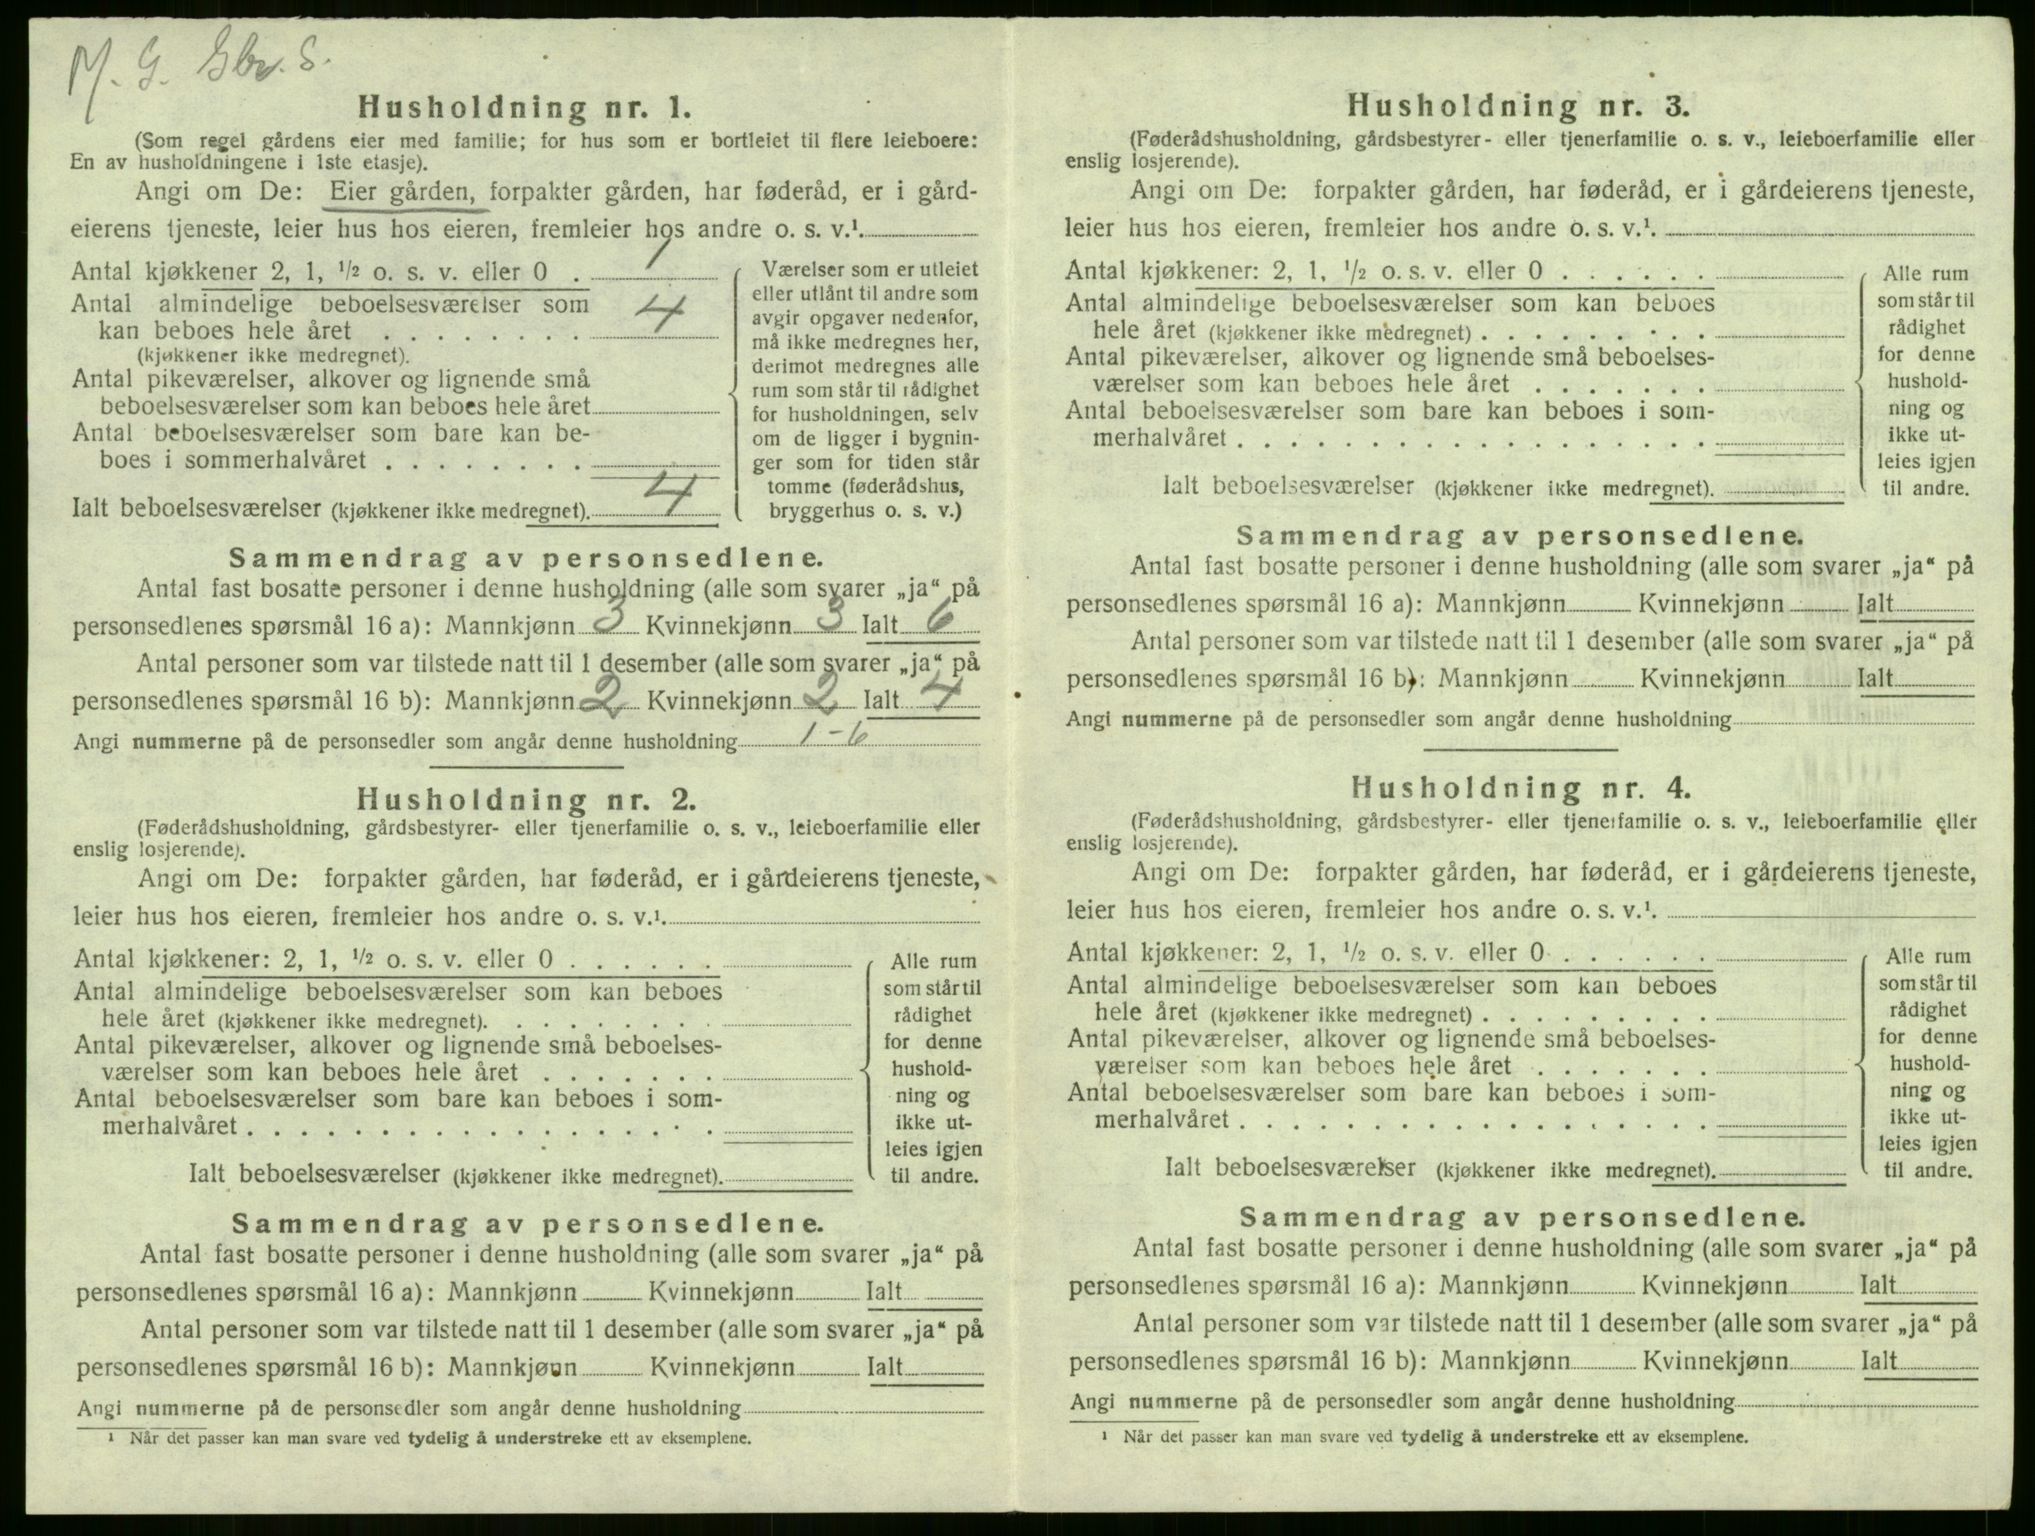 M. G. Gbr. S.
Husholdning nr. 1.
(Som regel gårdens eier med familie; for hus som er bortleiet til flere leieboere:
En av husholdningene i 1ste etasje).
Angi om De: Eier gården, forpakter gården, har føderåd, er i gård-
eierens tjeneste, leier hus hos eieren, fremleier hos andre o. s. v.¹.
Antal kjøkkener 2, 1, ½ o. s. v. eller 0 . 1
Antal almindelige beboelsesværelser som
kan beboes hele året . . . . . . . . 4
(kjøkkener ikke medregnet).
Antal pikeværelser, alkover og lignende små
beboelsesværelser som kan beboes hele året
Antal beboelsesværelser som bare kan be-
boes i sommerhalvåret . . . . . . . .
Ialt beboelsesværelser (kjøkkener ikke medregnet). 4
Værelser som er utleiet
eller utlånt til andre som
avgir opgaver nedenfor,
må ikke medregnes her,
derimot medregnes alle
rum som står til rådighet
for husholdningen, selv
om de ligger i bygnin-
ger som for tiden står
tomme (føderådshus,
bryggerhus o. s. v.)
Sammendrag av personsedlene.
Antal fast bosatte personer i denne husholdning (alle som svarer „ja“ på
personsedlenes spørsmål 16 a): Mannkjønn 3 Kvinnekjønn 3 Ialt 6
Antal personer som var tilstede natt til 1 desember (alle som svarer „ja“ på
personsedlenes spørsmål 16 b): Mannkjønn 2 Kvinnekjønn 2 Ialt 4
Angi nummerne på de personsedler som angår denne husholdning 1-6
Husholdning nr. 2.
(Føderådshusholdning, gårdsbestyrer- eller tjenerfamilie o. s. v., leieboerfamilie eller
enslig losjerende).
Angi om De: forpakter gården, har føderåd, er i gårdeierens tjeneste,
leier hus hos eieren, fremleier hos andre o. s. v.¹.
Antal kjøkkener: 2, 1, ½ o. s. v. eller 0 . . . . . .
Antal almindelige beboelsesværelser som kan beboes
hele året (kjøkkener ikke medregnet). . . . . . . . .
Antal pikeværelser, alkover og lignende små beboelses-
værelser som kan beboes hele året . . . . . . .
Antal beboelsesværelser som bare kan beboes i som-
merhalvåret . . . . . . . . . . . . . . . . . .
Ialt beboelsesværelser (kjøkkener ikke medregnet).
Alle rum
som står til
rådighet
for denne
hushold-
ning og
ikke ut-
leies igjen
til andre.
Sammendrag av personsedlene.
Antal fast bosatte personer i denne husholdning (alle som svarer „ja“ på
personsedlenes spørsmål 16 a): Mannkjønn Kvinnekjønn Ialt
Antal personer som var tilstede natt til 1 desember (alle som svarer „ja“ på
personsedlenes spørsmål 16 b): Mannkjønn Kvinnekjønn Ialt
Angi nummerne på de personsedler som angår denne husholdning
¹ Når det passer kan man svare ved tydelig å understreke ett av eksemplene.
Husholdning nr. 3.
(Føderådshusholdning, gårdsbestyrer- eller tjenerfamilie o. s. v., leieboerfamilie eller
enslig losjerende).
Angi om De: forpakter gården, har føderåd, er i gårdeierens tjeneste,
leier hus hos eieren, fremleier hos andre o. s. v.¹.
Antal kjøkkener: 2, 1, ½ o. s. v. eller 0 . . . . . .
Antal almindelige beboelsesværelser som kan beboes
hele året (kjøkkener ikke medregnet) . . . . . . . . .
Antal pikeværelser, alkover og lignende små beboelses-
værelser som kan beboes hele året . . . . . . .
Antal beboelsesværelser som bare kan beboes i som-
merhalvåret . . . . . . . . . . . . . . . . . .
Ialt beboelsesværelser (kjøkkener ikke medregnet).
Alle rum
som står til
rådighet
for denne
hushold-
ning og
ikke ut-
leies igjen
til andre.
Sammendrag av personsedlene.
Antal fast bosatte personer i denne husholdning (alle som svarer „ja“ på
personsedlenes spørsmål 16 a): Mannkjønn Kvinnekjønn Ialt
Antal personer som var tilstede natt til 1 desember (alle som svarer „ja“ på
personsedlenes spørsmål 16 b): Mannkjønn Kvinnekjønn Ialt
Angi nummerne på de personsedler som angår denne husholdning
Husholdning nr. 4.
(Føderådshusholdning, gårdsbestyrer- eller tjenerfamilie o. s. v., leieboerfamilie eller
enslig losjerende).
Angi om De: forpakter gården, har føderåd, er i gårdeierens tjeneste,
leier hus hos eieren, fremleier hos andre o. s. v.¹.
Antal kjøkkener: 2, 1, ½ o. s. v. eller 0 . . . . . .
Antal almindelige beboelsesværelser som kan beboes
hele året (kjøkkener ikke medregnet) . . . . . . . . .
Antal pikeværelser, alkover og lignende små beboelses-
værelser som kan beboes hele året . . . . . . .
Antal beboelsesværelser som bare kan beboes i som-
merhalvåret . . . . . . . . . . . . . . . . . .
Ialt beboelsesværelser (kjøkkener ikke medregnet).
Alle rum
som står til
rådighet
for denne
hushold-
ning og
ikke ut-
leies igjen
til andre.
Sammendrag av personsedlene.
Antal fast bosatte personer i denne husholdning (alle som svarer „ja“ på
personsedlenes spørsmål 16 a): Mannkjønn Kvinnekjønn Ialt
Antal personer som var tilstede natt til 1 desember (alle som svarer „ja“ på
personsedlenes spørsmål 16 b): Mannkjønn Kvinnekjønn Ialt
Angi nummerne på de personsedler som angår denne husholdning
¹ Når det passer kan man svare ved tydelig å understreke ett av eksemplene.